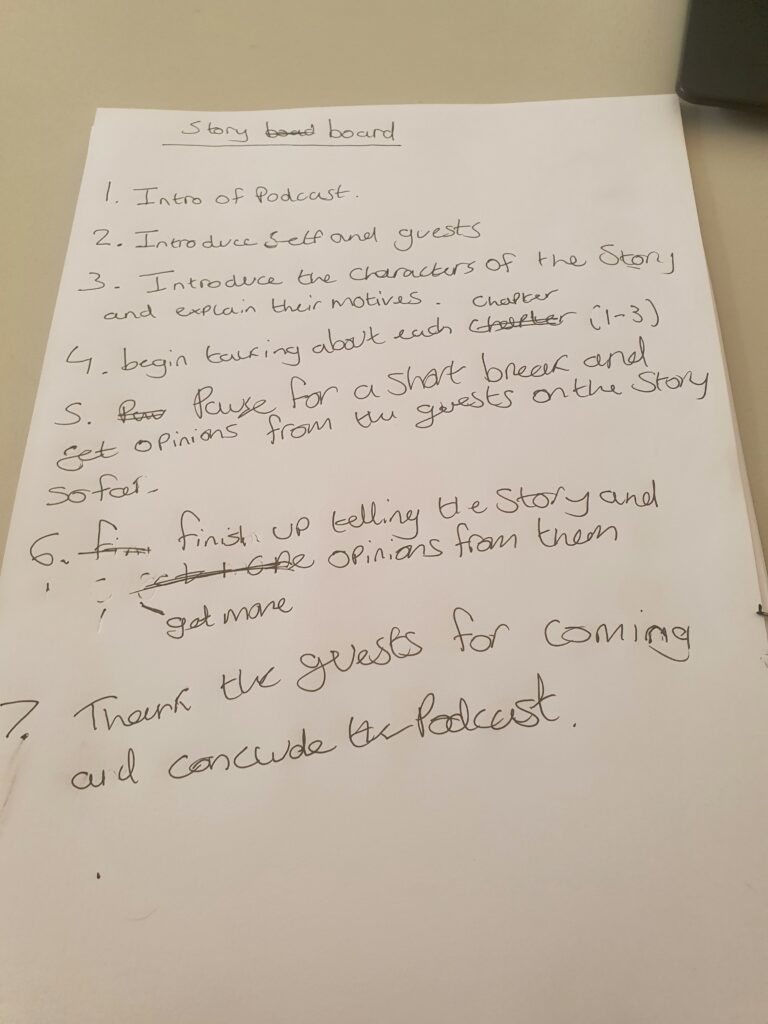 Story board board
1. Intro of Podcast.
2. Introduce Self and guests
3. Introduce the characters of the Story
and explain their motives. Chapter
4. begin talking about each chapter (1-3)
5. Pause for a short break and
get opinions from the guests on the Story
so far.
6. finish up telling the Story and
opinions from them
get more
7. Thank the guests for coming
and conclude the Podcast.